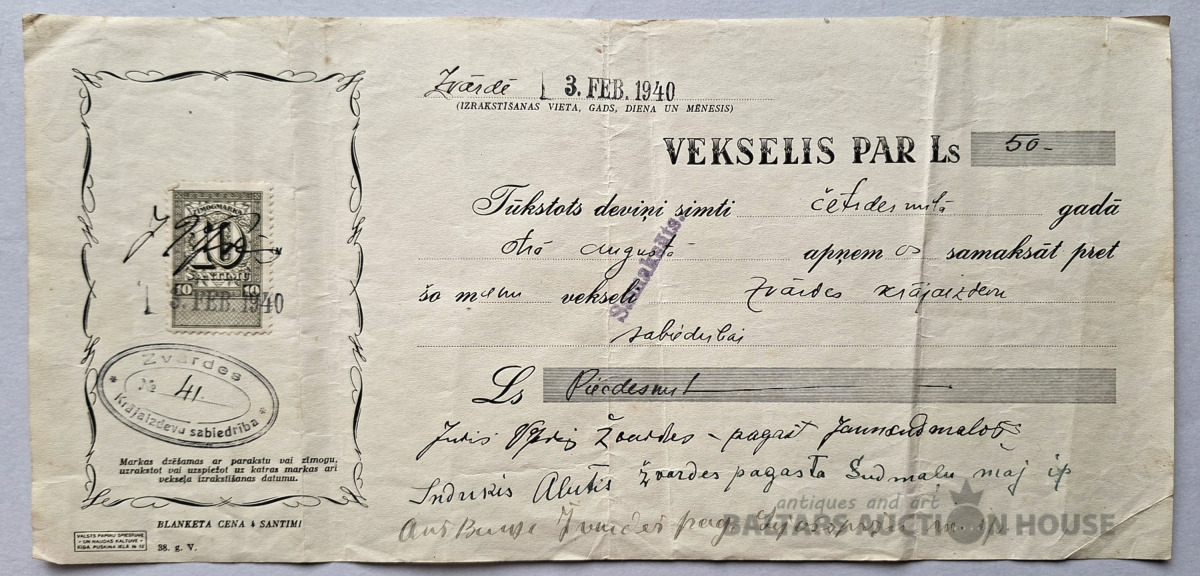 Zvārdē 13. FEB. 1940
(IZRAKSTĪŠANAS VIETA, GADS, DIENA UN MĒNESIS)
VEKSELIS PAR Ls 50-
Tūkstots deviņi simti četrdesmitā gadā
otrā augustā apņemos samaksāt pret
šo manu vekseli Zvārdes krājaizdevu
sabiedrībai
Samaksāts.
Ls Piecdesmit
Zvardes - pagast
Indriķis Zvardes pagasta Sudmalu maj ip
pag.
ZĪMOGMARKA
10
SANTIMU
10 10
13. FEB. 1940
Zvārdes
№ 41.
Krājaizdevu sabiedrība
Markas dzēšamas ar parakstu vai zīmogu,
uzrakstot vai uzspiežot uz katras markas arī
vekseļa izrakstīšanas datumu.
BLANKETA CENA 4 SANTIMI
VALSTS PAPIRU SPIESTUVE
UN NAUDAS KALTUVE
RIGA, PUŠKINA IELĀ № 12
38. g. V.
antiques and art
BALTARS AUCTION HOUSE